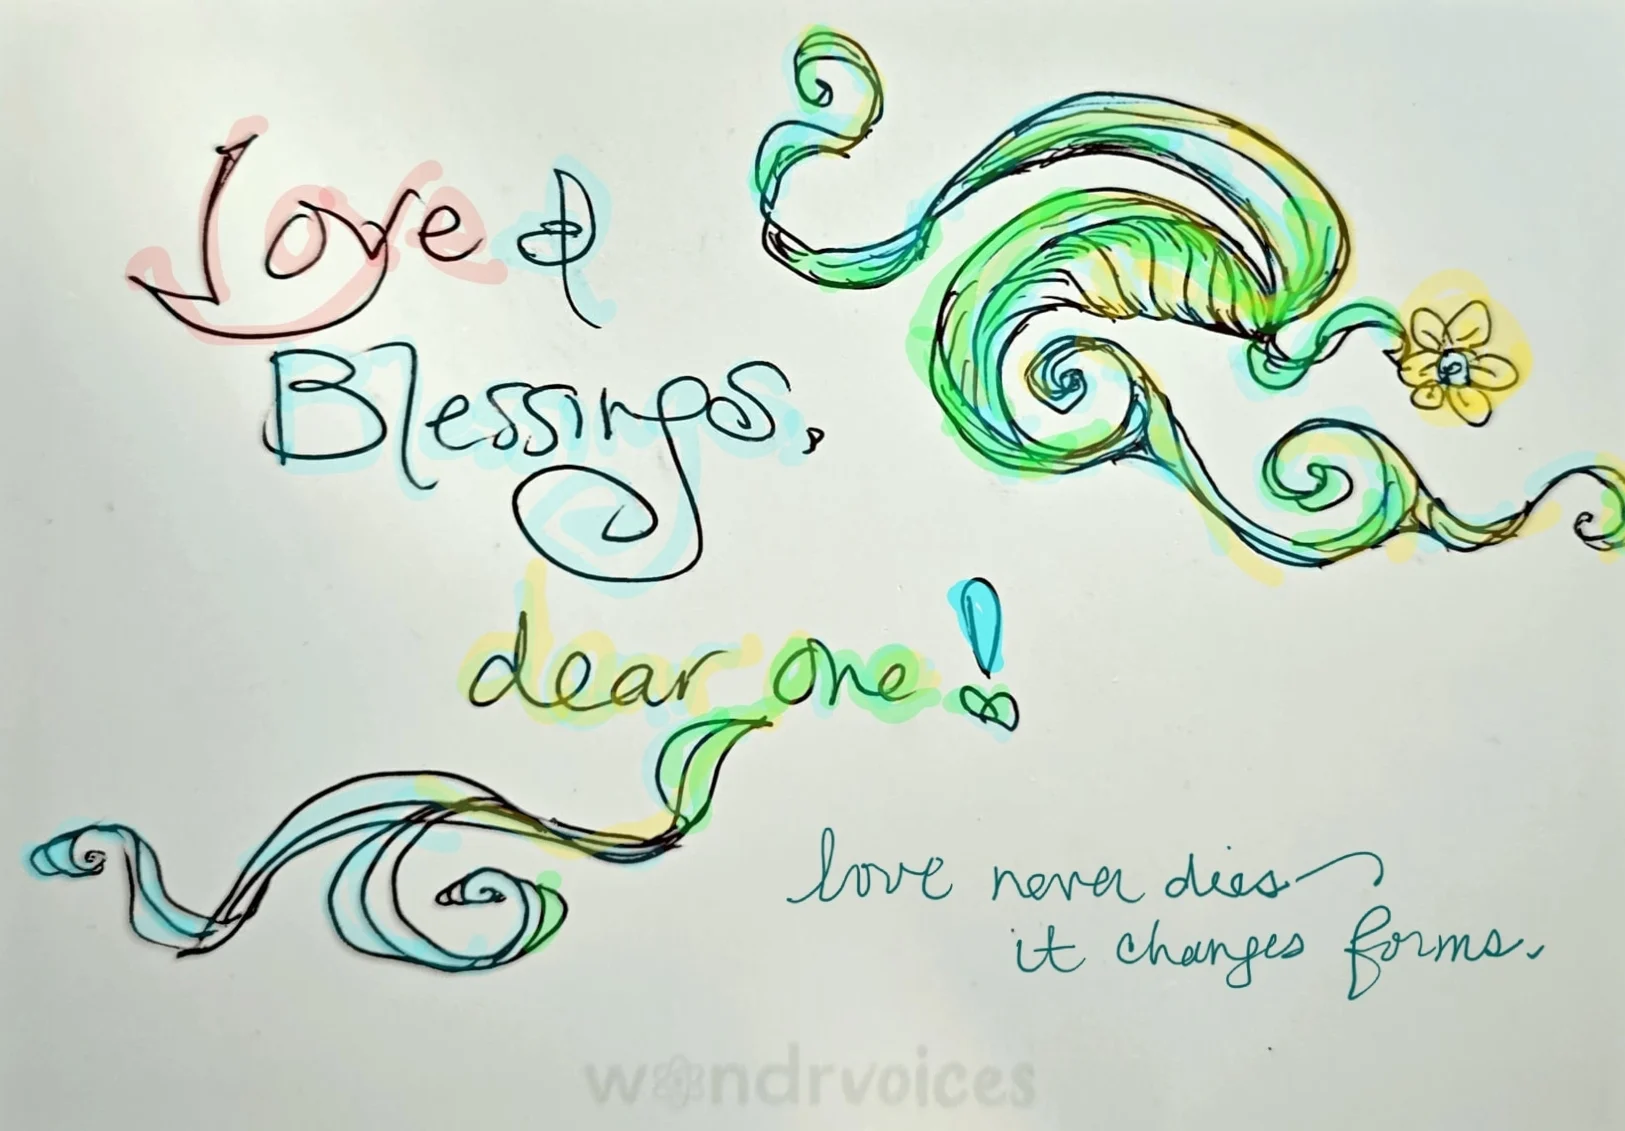 Love &
Blessings,
dear one!
love never dies
it changes forms.
wondrvoices